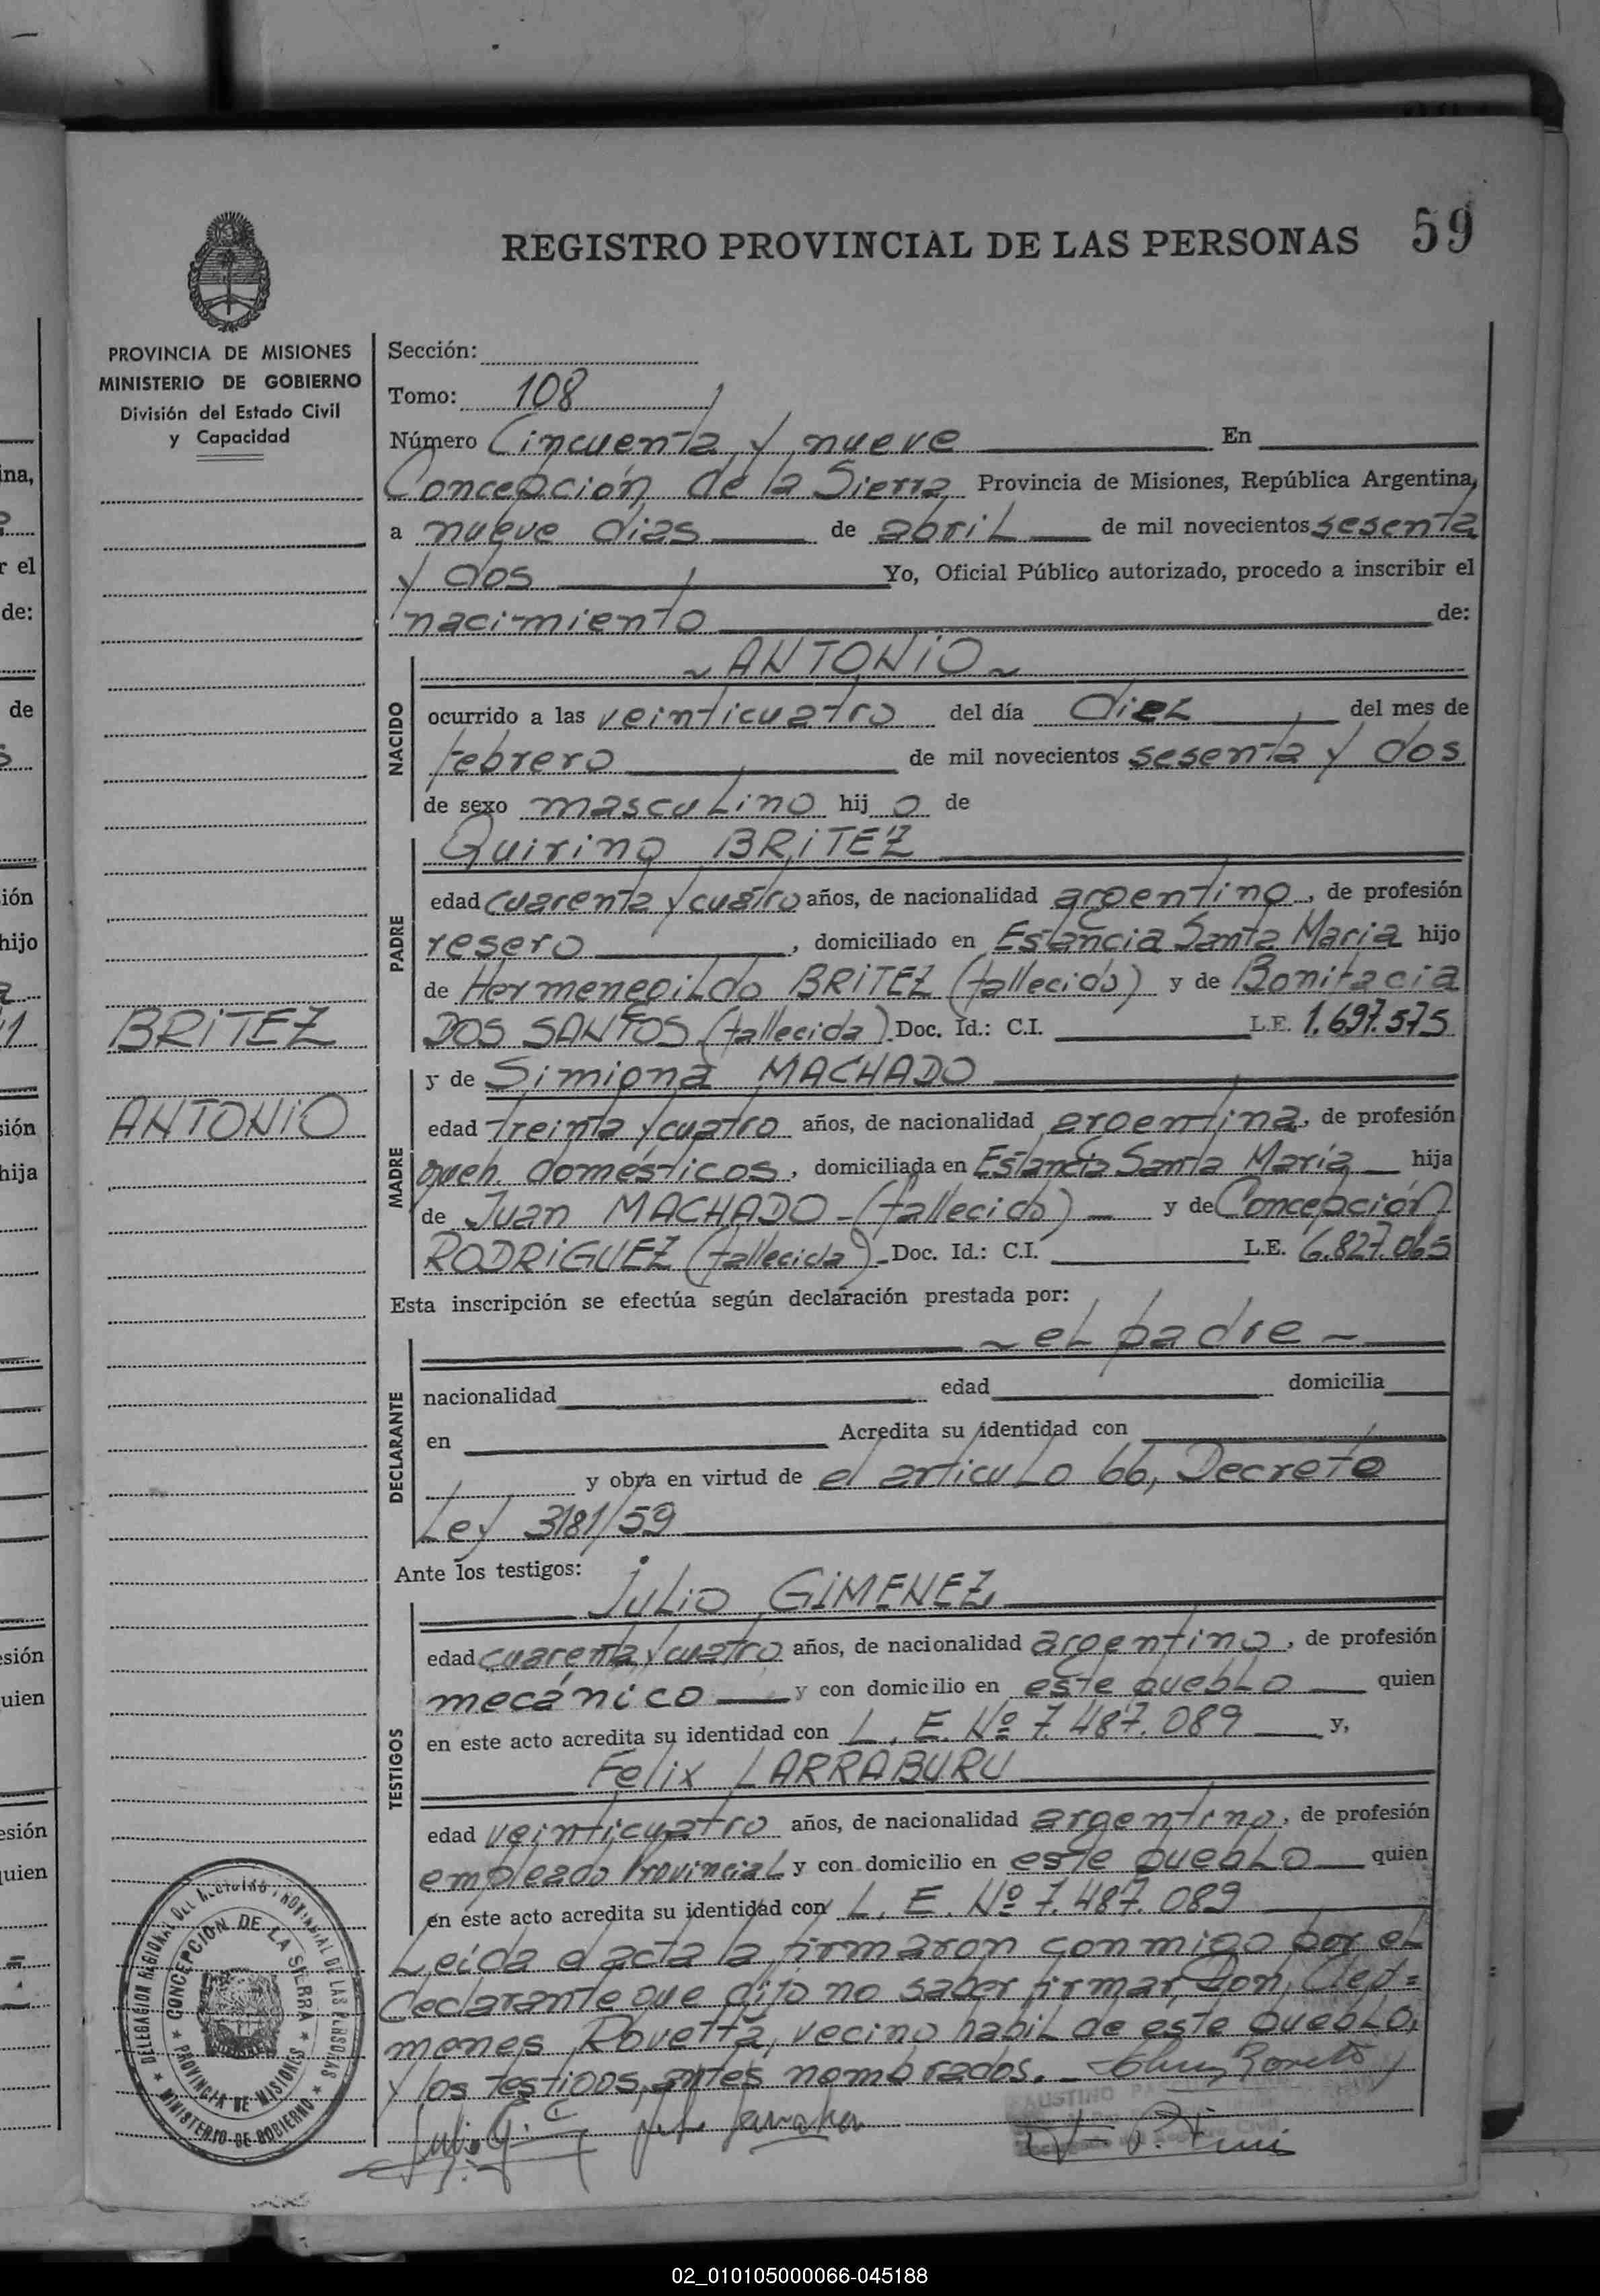 REGISTRO PROVINCIAL DE LAS PERSONAS 59
PROVINCIA DE MISIONES
MINISTERIO DE GOBIERNO
División del Estado Civil
y Capacidad
BRITEZ
ANTONIO
Sección:
Tomo: 108
Número Cincuenta y nueve En
Concepción de la Sierra Provincia de Misiones, República Argentina,
a nueve dias de abril de mil novecientos sesenta
y dos Yo, Oficial Público autorizado, procedo a inscribir el
nacimiento de:
NACIDO
~ ANTONIO ~
ocurrido a las veinticuatro del día diez del mes de
febrero de mil novecientos sesenta y dos
de sexo masculino hij o de
PADRE
Quirino BRITEZ
edad cuarenta y cuatro años, de nacionalidad argentino, de profesión
resero, domiciliado en Estancia Santa Maria hijo
de Hermenegildo BRITEZ (fallecido) y de Bonifacia
DOS SANTOS (fallecida). Doc. Id.: C.I. L.E. 1.697.575
MADRE
y de Simiona MACHADO
edad treinta y cuatro años, de nacionalidad argentina, de profesión
queh. domésticos, domiciliada en Estancia Santa Maria hija
de Juan MACHADO - (fallecido) - y de Concepción
RODRIGUEZ (fallecida) - Doc. Id.: C.I. L.E. 6.827.065
Esta inscripción se efectúa según declaración prestada por:
DECLARANTE
~ el padre ~
nacionalidad edad domicilia
en Acredita su identidad con
y obra en virtud de el articulo 66, Decreto
Ley 3181/59
Ante los testigos:
TESTIGOS
Julio GIMENEZ
edad cuarenta y cuatro años, de nacionalidad argentino, de profesión
mecánico y con domicilio en este pueblo quien
en este acto acredita su identidad con L. E. Nº 7.487.089 y,
Felix LARRABURU
edad veinticuatro años, de nacionalidad argentino, de profesión
empleado Provincial y con domicilio en este pueblo quien
en este acto acredita su identidad con L. E. Nº 7.487.089
Leida el acta la firmaron conmigo por el
declarante que dijo no saber firmar, Don, Cleo=
menes Rovetta, vecino habil de este pueblo,
y los testigos antes nombrados. -
DELEGACION REGIONAL DEL REGISTRO PROVINCIAL DE LAS PERSONAS
CONCEPCION DE LA SIERRA
PROVINCIA DE MISIONES
MINISTERIO DE GOBIERNO
02_010105000066-045188